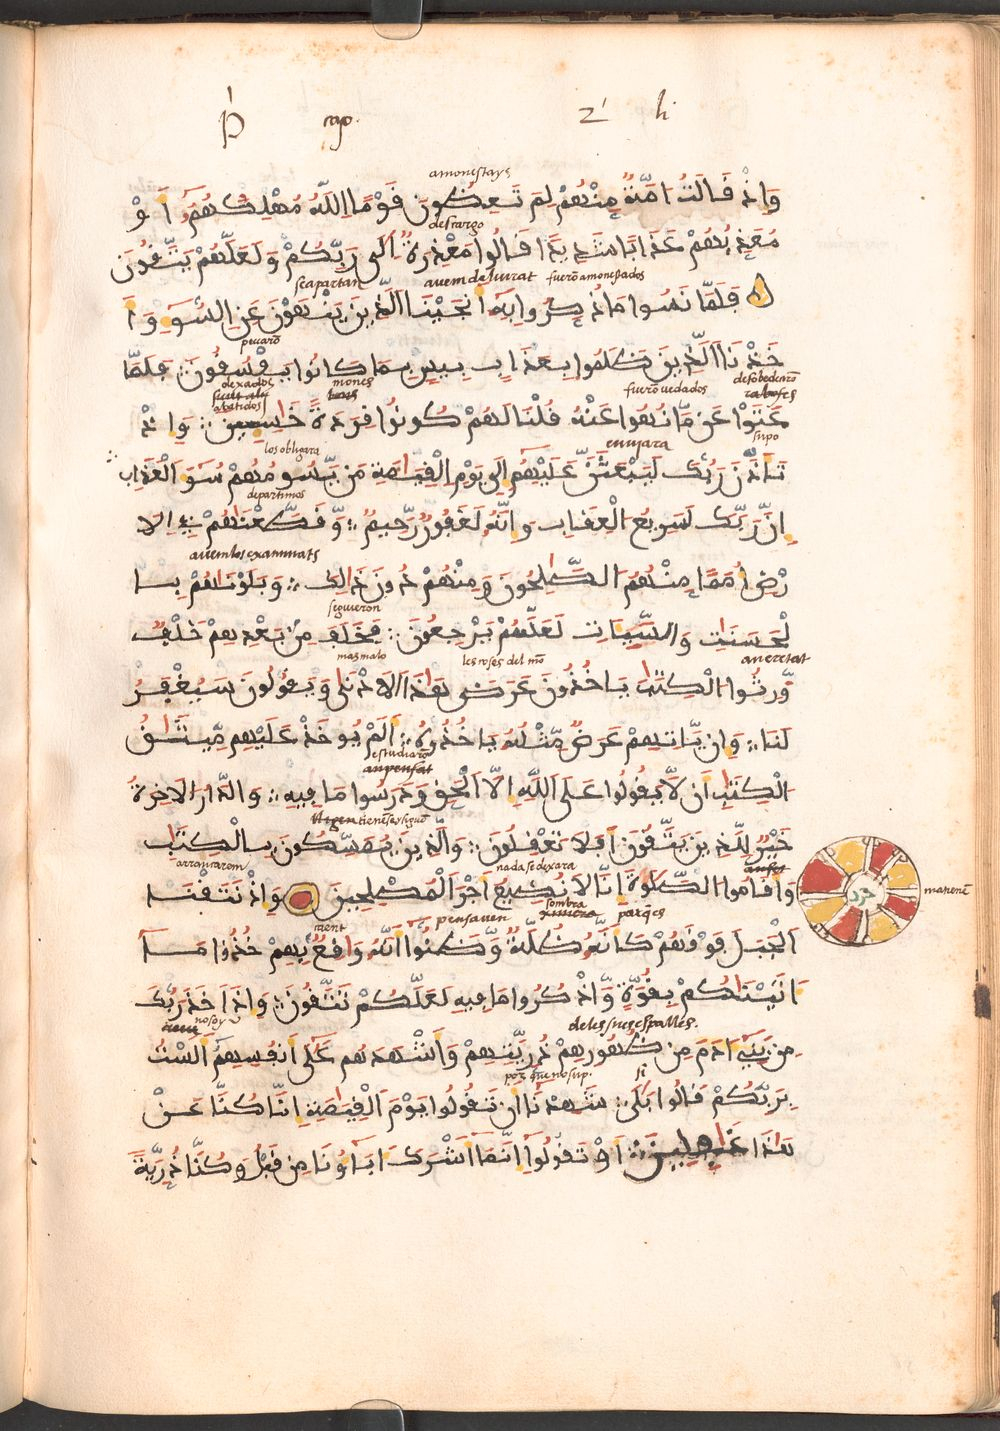 cap. 2 li
amonestays
وَإِذْ قَالَتُ امَّةٌ مِّنْهُمْ لِمَ تَعِظُونَ قَوْمًا اِللَّهُ مُهْلِكُهُمُ أَوْ
descargo
مُعَذِّبُهُمْ عَذَابًا شَدِيدًا قَالُوا مَعْذِرَةٌ اِلَى رَبِّكُمْ وَلَعَلَّهُمْ يَتَّقُونَ
scapartan avem deliurat fuerõ amonestados
فَلَمَّا نَسُوا مَا ذُكِّرُوا بِهِ أَنجَيْنَا الَّذِينَ يَنْهَوْنَ عَنِ السُّوءِ وَأَ
pecarõ
خَذْنَا الَّذِينَ ظَلَمُوا بِعَذَابٍ بِيسٍ بِمَا كَانُوا يَفْسُقُونَ فَلَمَّا
dexados mones fuerõ vedados desobedecierõ
abatidos
عَتَوْا عَن مَّا نُهُوا عَنْهُ قُلْنَا لَهُمْ كُونُوا قِرَدَةً خَاسِئِينَ وَإِذْ
los obligara enviara supo
تَأَذَّنَ رَبُّكَ لَيَبْعَثَنَّ عَلَيْهِمُ إِلَى يَوْمِ الْقِيَامَةِ مَن يَّسُومُهُمْ سُوءَ الْعَذَابِ
departimos
إِنَّ رَبَّكَ لَسَرِيعُ الْعِقَابِ وَإِنَّهُ لَغَفُورٌ رَّحِيمٌ وَقَطَّعْنَاهُمْ فِي الَا
avem los examinats
رْضِ أُمَمًا مِّنْهُمُ الصَّالِحُونَ وَمِنْهُمْ دُونَ ذَالِكَ وَبَلَوْنَاهُمْ بِا
siguieron
لْحَسَنَاتِ وَالسَّيِّئَاتِ لَعَلَّهُمْ يَرْجِعُونَ فَخَلَفَ مِن بَعْدِهِمْ خَلْفٌ
mas malo les coses del mõ an eretat
وَّرِثُوا الْكِتَابَ يَاخُذُونَ عَرَضَ هَذَا الَادْنَى وَيَقُولُونَ سَيُغْفَرُ
لَنَا وَإِن يَّاتِهِمْ عَرَضٌ مِّثْلُهُ يَاخُذُوهُ أَلَمْ يُوخَذْ عَلَيْهِم مِّيثَاقُ
estudiarõ
الْكِتَابِ أَن لَّا يَقُولُوا عَلَى اللَّهِ إِلَّا الْحَقَّ وَدَرَسُوا مَا فِيهِ وَالدَّارُ الَاخِرَةُ
tienense
خَيْرٌ لِّلَّذِينَ يَتَّقُونَ أَفَلَا تَعْقِلُونَ وَالَّذِينَ يُمَسِّكُونَ بِالْكِتَابِ
arrancarem nada se dexara
وَأَقَامُوا الصَّلَوٰةَ إِنَّا لَا نُضِيعُ أَجْرَ الْمُصْلِحِينَ وَإِذْ نَتَقْنَا
pensaven sombra
الْجَبَلَ فَوْقَهُمْ كَأَنَّهُ ظُلَّةٌ وَّظَنُّوا أَنَّهُ وَاقِعٌ بِهِمْ خُذُوا مَا
ءَاتَيْنَاكُمْ بِقُوَّةٍ وَّاذْكُرُوا مَا فِيهِ لَعَلَّكُمْ تَتَّقُونَ وَإِذَ اَخَذَ رَبُّكَ
no soy de les sues espalles.
مِن بَنِي ءَادَمَ مِن ظُهُورِهِمْ ذُرِّيَّتِهِمْ وَأَشْهَدَهُمْ عَلَى أَنفُسِهِمُ أَلَسْتُ
por que no sup. si
بِرَبِّكُمْ قَالُوا بَلَى شَهِدْنَا أَن تَقُولُوا يَوْمَ الْقِيَامَةِ إِنَّا كُنَّا عَنْ
هَذَا غَافِلِينَ أَوْ تَقُولُوا إِنَّمَا أَشْرَكَ ءَابَاؤُنَا مِن قَبْلُ وَكُنَّا ذُرِّيَّةً